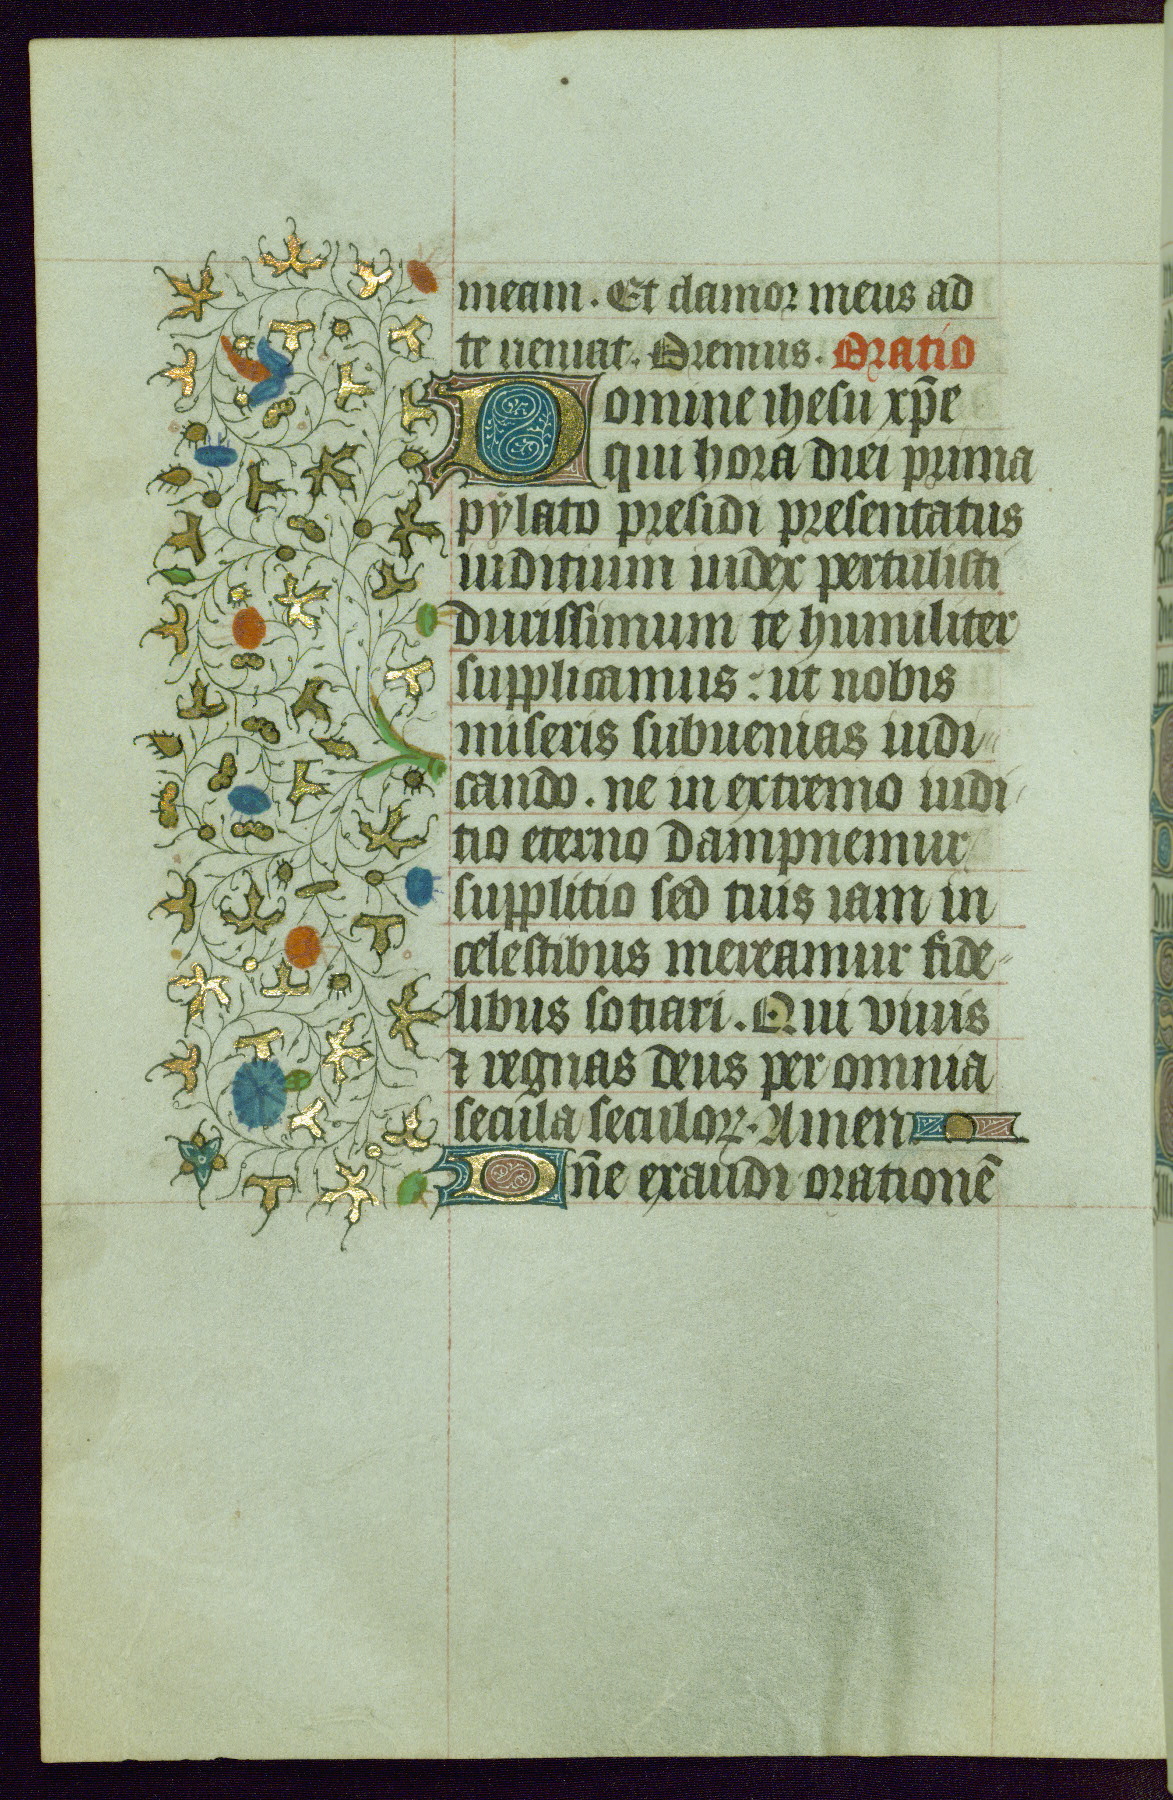 meam. Et clamor meus ad
te ueniat. Oremus. Oratio
Domine ihesu xp̄e
qui hora diei prima
pÿlato presidi presentatus
iuditium iudex pertulisti
durissimum te humiliter
supplicamus: ut nobis
miseris subuenias iudi-
cando. ne in extremo iudi
tio eterno dampnemur
supplitio sed tuis iam in
celestibus mereamur fide-
libus sotiari. Qui viuis
⁊ regnas deus per omnia
secula seculoꝝ. Amen
Dn̄e exaudi orationē